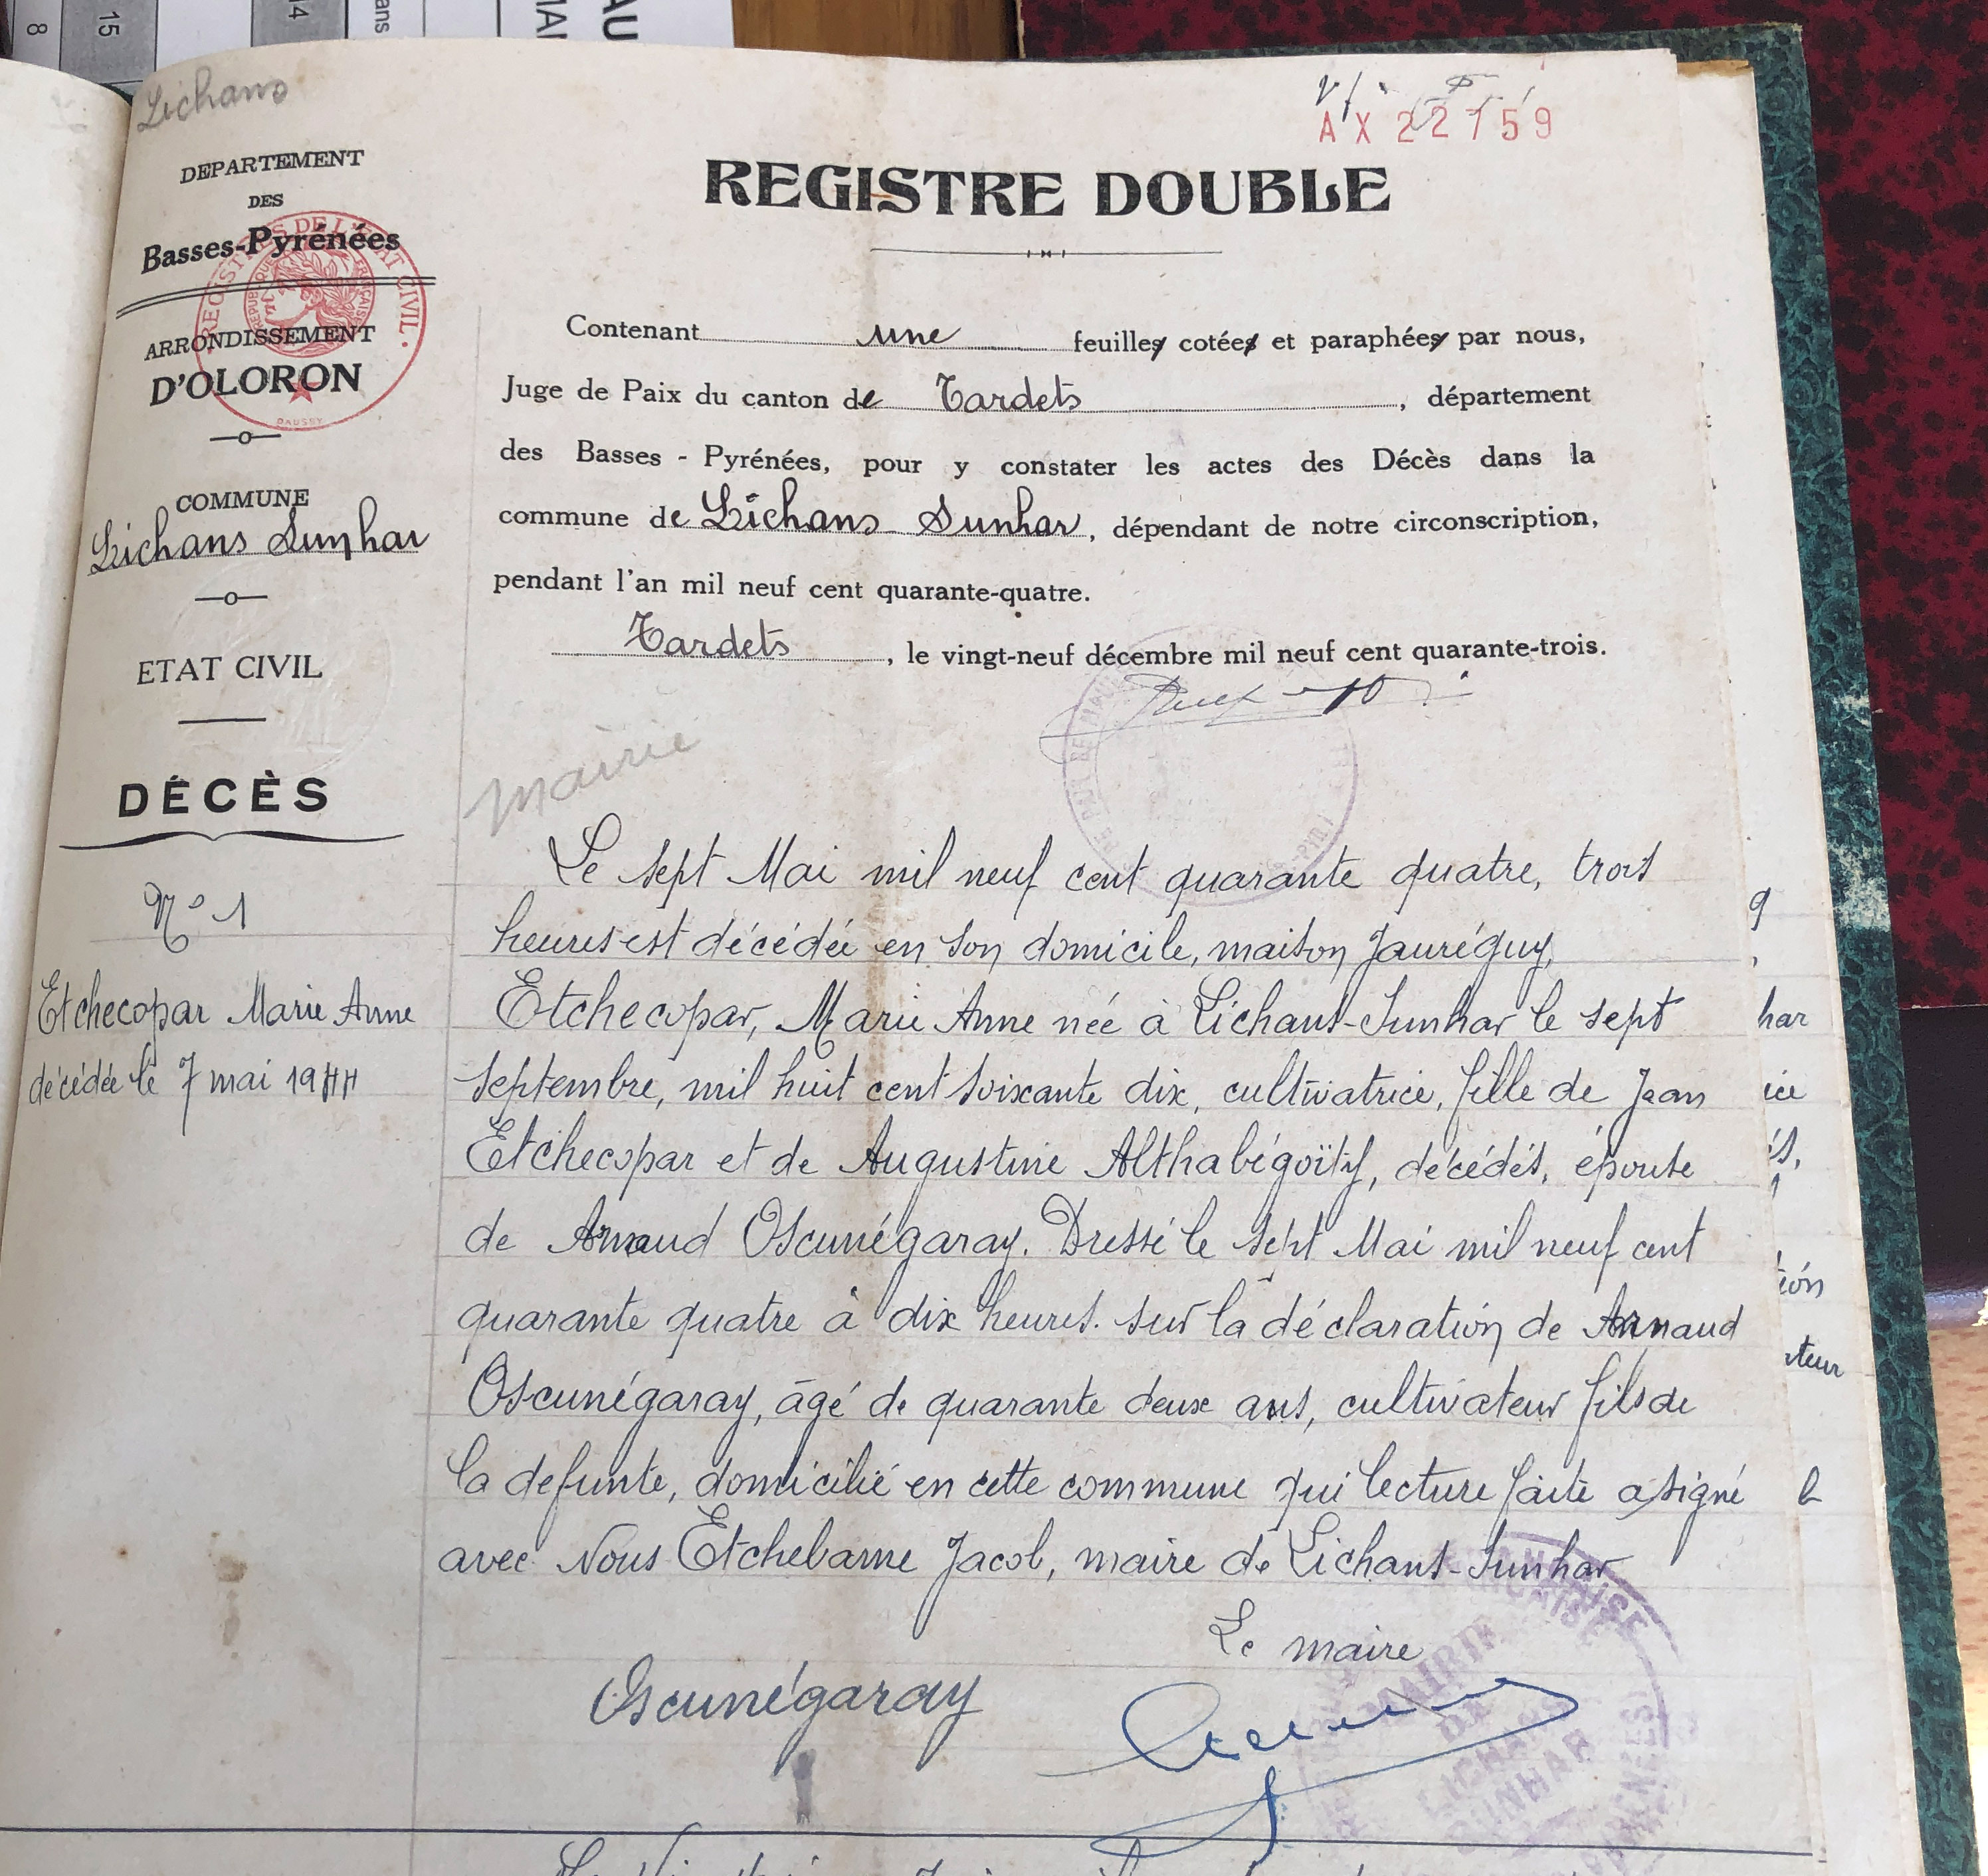 Lichans
DEPARTEMENT
DES
Basses-Pyrénées
ARRONDISSEMENT
D'OLORON
COMMUNE
Lichans Sunhar
ETAT CIVIL
DÉCÈS
N° 1
Etchecopar Marie Anne
décédée le 7 mai 1944
REGISTRES DE L'ETAT CIVIL
REPUBLIQUE FRANÇAISE
DAUSSY
AX 22159
REGISTRE DOUBLE
Contenant une feuilles cotées et paraphées par nous,
Juge de Paix du canton de Tardets, département
des Basses-Pyrénées, pour y constater les actes des Décès dans la
commune de Lichans Sunhar, dépendant de notre circonscription,
pendant l'an mil neuf cent quarante-quatre.
Tardets, le vingt-neuf décembre mil neuf cent quarante-trois.
Mairie
Le sept Mai mil neuf cent quarante quatre, trois
heures est décédée en son domicile, maison Jauréguy,
Etchecopar, Marie Anne née à Lichans-Sunhar le sept
septembre, mil huit cent soixante dix, cultivatrice, fille de Jean
Etchecopar et de Augustine Althabégoïty, décédés, épouse
de Arnaud Oscunégaray. Dressé le sept Mai mil neuf cent
quarante quatre à dix heures. sur la déclaration de Arnaud
Oscunégaray, âgé de quarante deux ans, cultivateur fils de
la defunte, domicilié en cette commune qui lecture faite a signé
avec Nous Etchebarne Jacob, maire de Lichans-Sunhar
Le maire
Oscunégaray
MAIRIE
DE
LICHANS
SUNHAR
har
ice
és,
tión
ateur
15
14
8
ans
AU